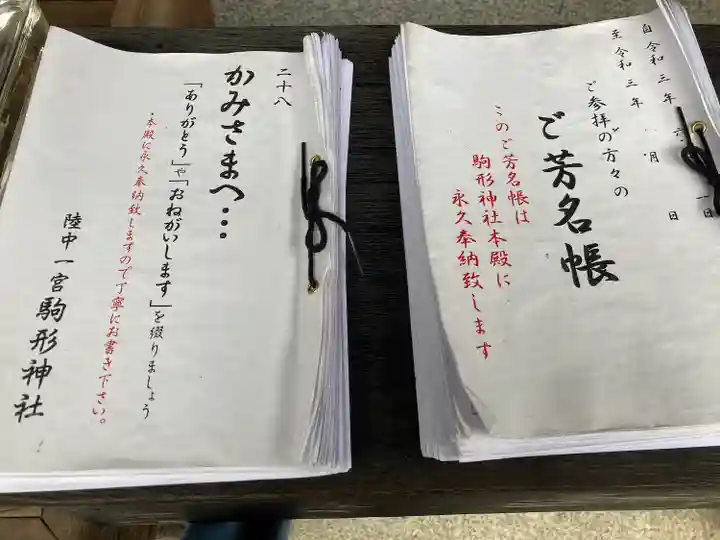 二十八
かみさまへ…
「ありがとう」や「おねがいします」を綴りましょう
・本殿に永久奉納致しますので丁寧にお書き下さい。
陸中一宮駒形神社
自令和三年六月一日
至令和三年 月 日
ご参拝の方々の
ご芳名帳
このご芳名帳は
駒形神社本殿に
永久奉納致します